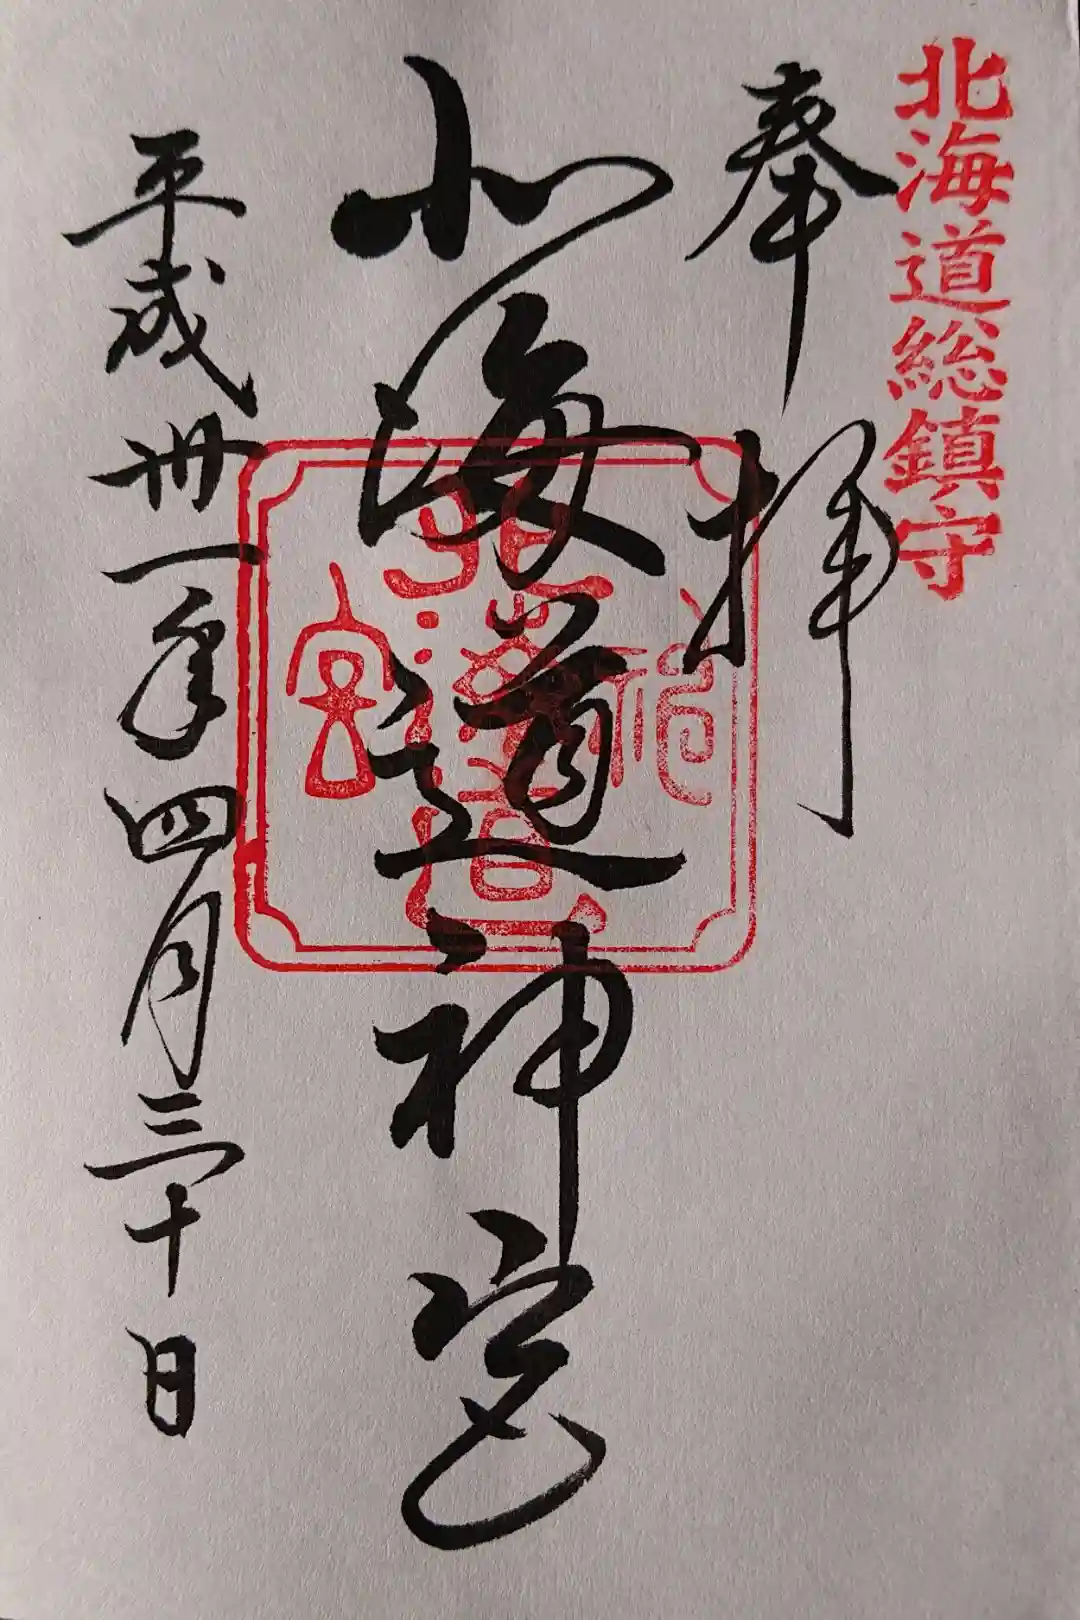 北海道総鎮守
奉拝
北海道神宮
平成卅一年四月三十日